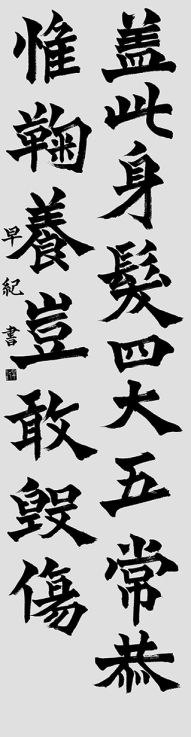 盖此身髮四大五常恭
惟鞠養豈敢毀傷
早紀書